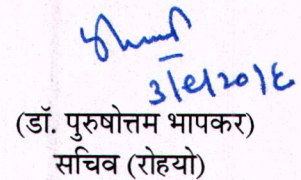 ३/९/२०१६
(डॉ. पुरुषोत्तम भापकर)
सचिव (रोहयो)